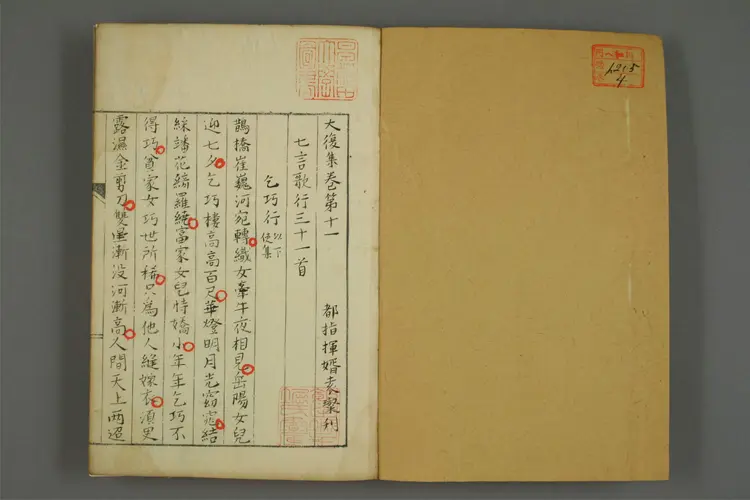 大復集卷第十一
都指揮婿袁璨刋
七言歌行三十一首
乞巧行以下使集
鵲橋崔巍河宛轉織女牽牛夜相見岳陽女兒
迎七夕乞巧樓高高百尺華燈明月光窈窕結
綵蟠花縞羅綺富家女兒恃嬌小年年乞巧不
得巧貧家女巧世所稀只為他人縫嫁衣須臾
露濕金剪刀雙星漸没河漸高人間天上兩迢
1215
4